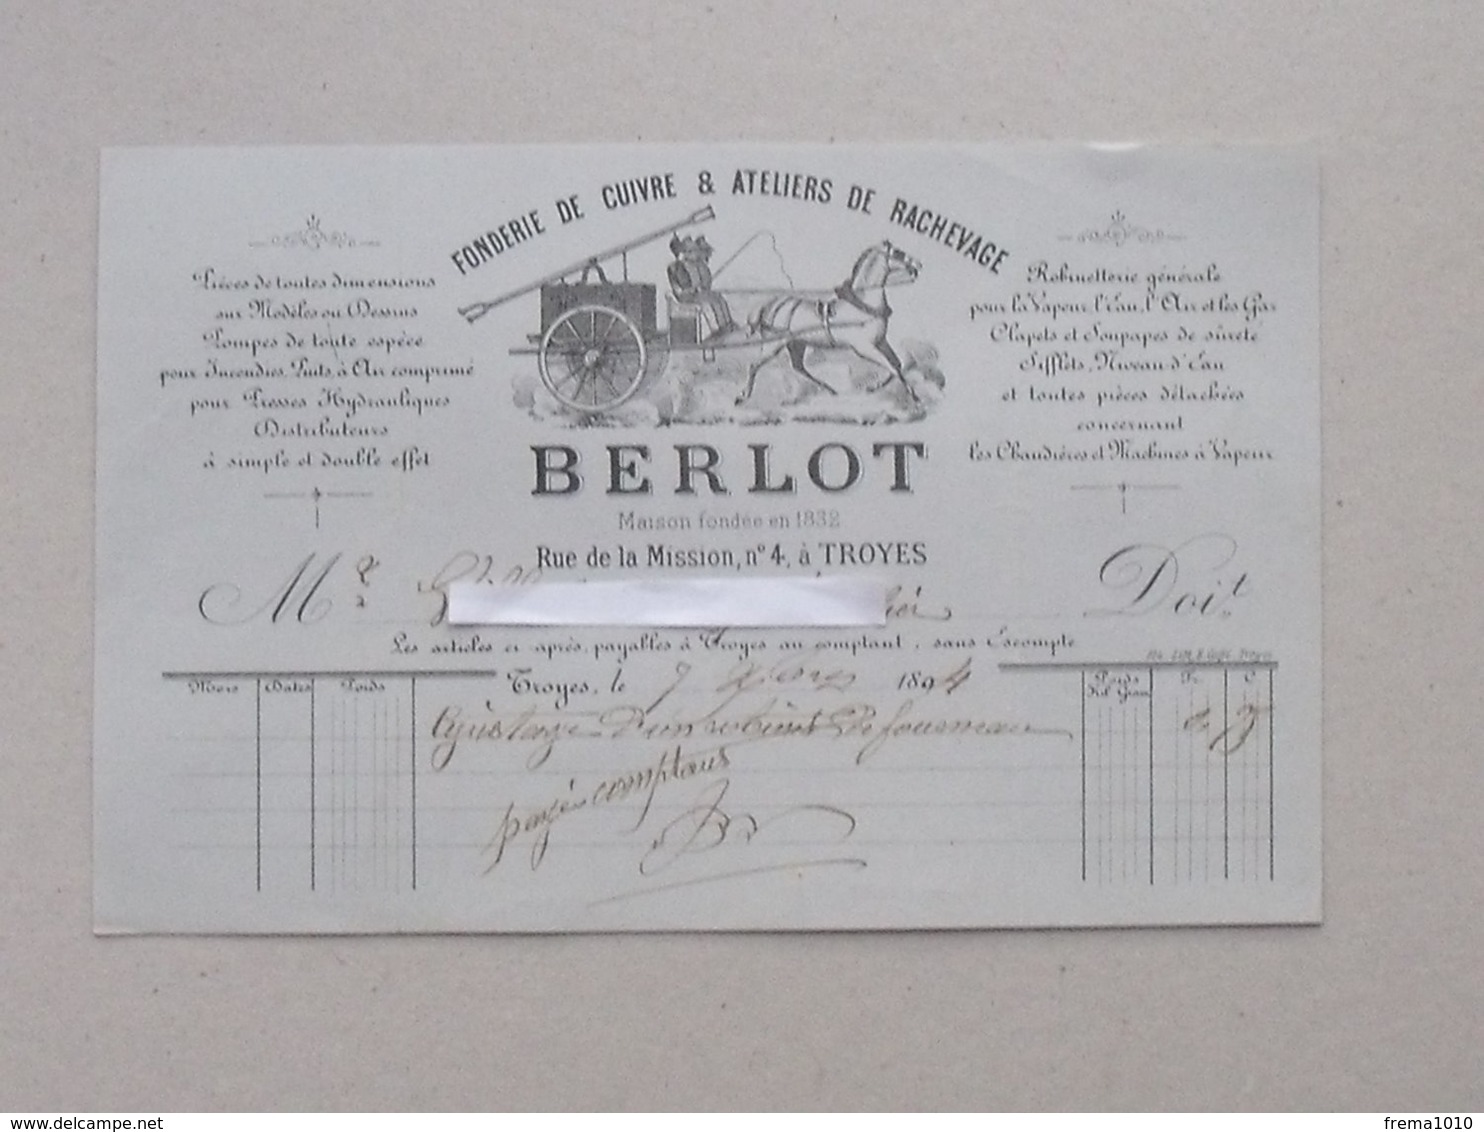 FONDERIE DE CUIVRE & ATELIERS DE RACHEVAGE
Pièces de toutes dimensions
sur Modèles ou Dessins
Pompes de toute espèce
pour Incendies, Puits, à Air comprimé
pour Presses Hydrauliques
Distributeurs
à simple et double effet
Robinetterie générale
pour la Vapeur, l'Eau, l'Air et les Gaz
Clapets et Soupapes de sûreté
Sifflets, Niveau d'Eau
et toutes pièces détachées
concernant
les Chaudières et Machines à Vapeur
BERLOT
Maison fondée en 1832
Rue de la Mission, n° 4, à TROYES
M Doit
Les articles ci-après, payables à Troyes au comptant, sans Escompte
Mois Dates Poids
Troyes, le 7 1894
Poids Kil. Gram. Fr. C.
Ajustage d'un robinet de fourneau
payé comptant
delcampe.net
frema1010